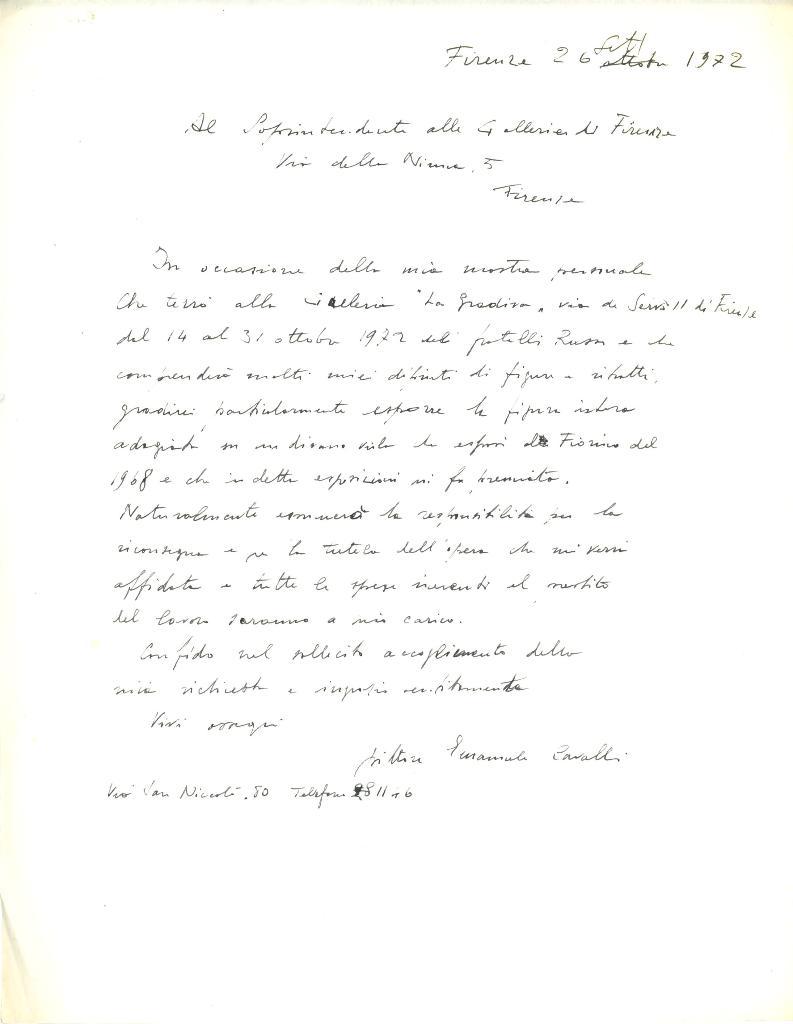 Firenze 26 Sett. ottobre 1972
Al Soprintendente alle Gallerie di Firenze
Via della Ninna, 5
Firenze
In occasione della mia mostra personale
che terrò alla Galleria "La Gradiva" via de Servi 11 di Firenze
dal 14 al 31 ottobre 1972 dei fratelli Russo e che
comprenderà molti miei dipinti di figure e ritratti,
gradirei particolarmente esporre la figura intera
adagiata su un divano viola che esposi al Fiorino del
1968 e che in detta esposizione mi fu premiata.
Naturalmente assumerò la responsabilità per la
riconsegna e per la tutela dell'opera che mi verrà
affidata e tutte le spese inerenti al prestito
del lavoro saranno a mio carico.
Confido nel sollecito accoglimento della
mia richiesta e ringrazio sentitamente
Vivi ossequi
pittore Emanuele Cavalli
Via San Niccolò, 80 Telefono